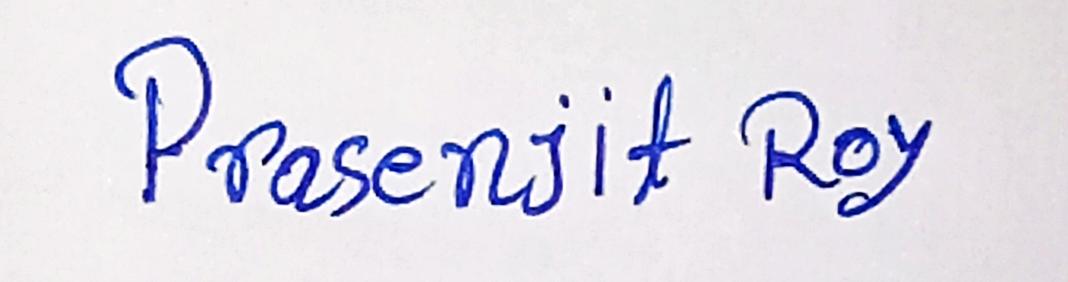 Prasenjit Roy